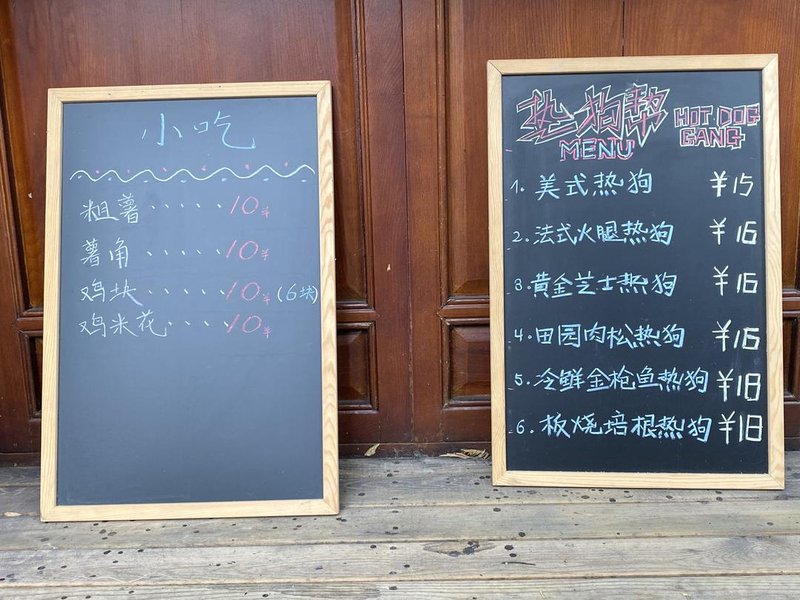 小吃
粗薯·····10¥
薯角·····10¥
鸡块·····10¥(6块)
鸡米花····10¥
热狗帮 HOT DOG
MENU GANG
1. 美式热狗 ¥15
2. 法式火腿热狗 ¥16
3. 黄金芝士热狗 ¥16
4. 田园肉松热狗 ¥16
5. 冷鲜金枪鱼热狗 ¥18
6. 板烧培根热狗 ¥18